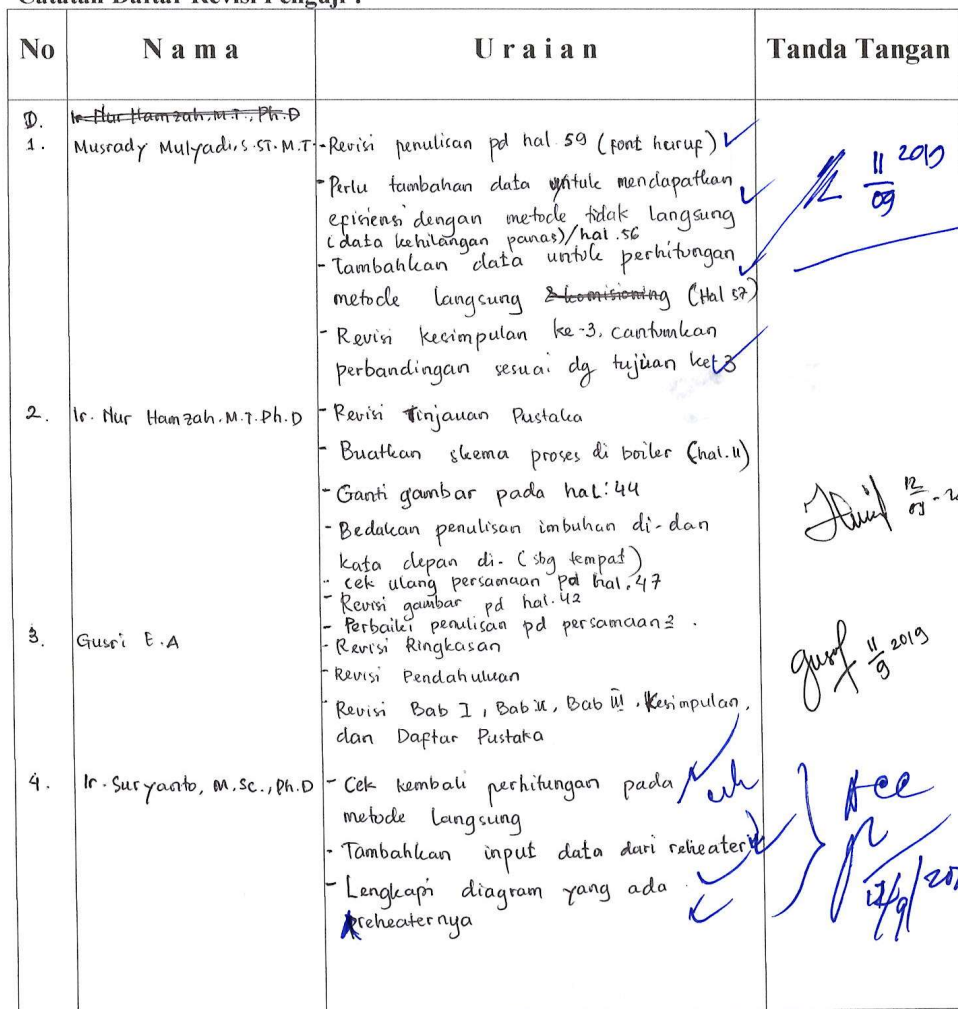 Catatan Daftar Revisi Penguji :
No Nama Uraian Tanda Tangan
Ir. Nur Hamzah, M.T., Ph.D
1. Musrady Mulyadi, S.ST. M.T - Revisi penulisan pd hal 59 (font huruf)
- Perlu tambahan data untuk mendapatkan
efisiensi dengan metode tidak langsung
(data kehilangan panas)/hal.56
- Tambahkan data untuk perhitungan
metode langsung & komisioning (Hal 57)
- Revisi kesimpulan ke-3, cantumkan
perbandingan sesuai dg tujuan ke 3
11/09 2019
2. Ir. Nur Hamzah. M.T. Ph.D - Revisi Tinjauan Pustaka
- Buatkan skema proses di boiler (hal.11)
- Ganti gambar pada hal: 44
- Bedakan penulisan imbuhan di- dan
kata depan di- (sbg tempat)
- cek ulang persamaan pd hal. 47
- Revisi gambar pd hal. 42
- Perbaiki penulisan pd persamaan2.
12/09 - 2
3. Gusri E.A - Revisi Ringkasan
- Revisi Pendahuluan
- Revisi Bab I, Bab II, Bab III, Kesimpulan,
dan Daftar Pustaka
11/9 2019
4. Ir. Suryanto, M.Sc., Ph.D - Cek kembali perhitungan pada
metode langsung
- Tambahkan input data dari reheater
- Lengkapi diagram yang ada
preheaternya
Acc